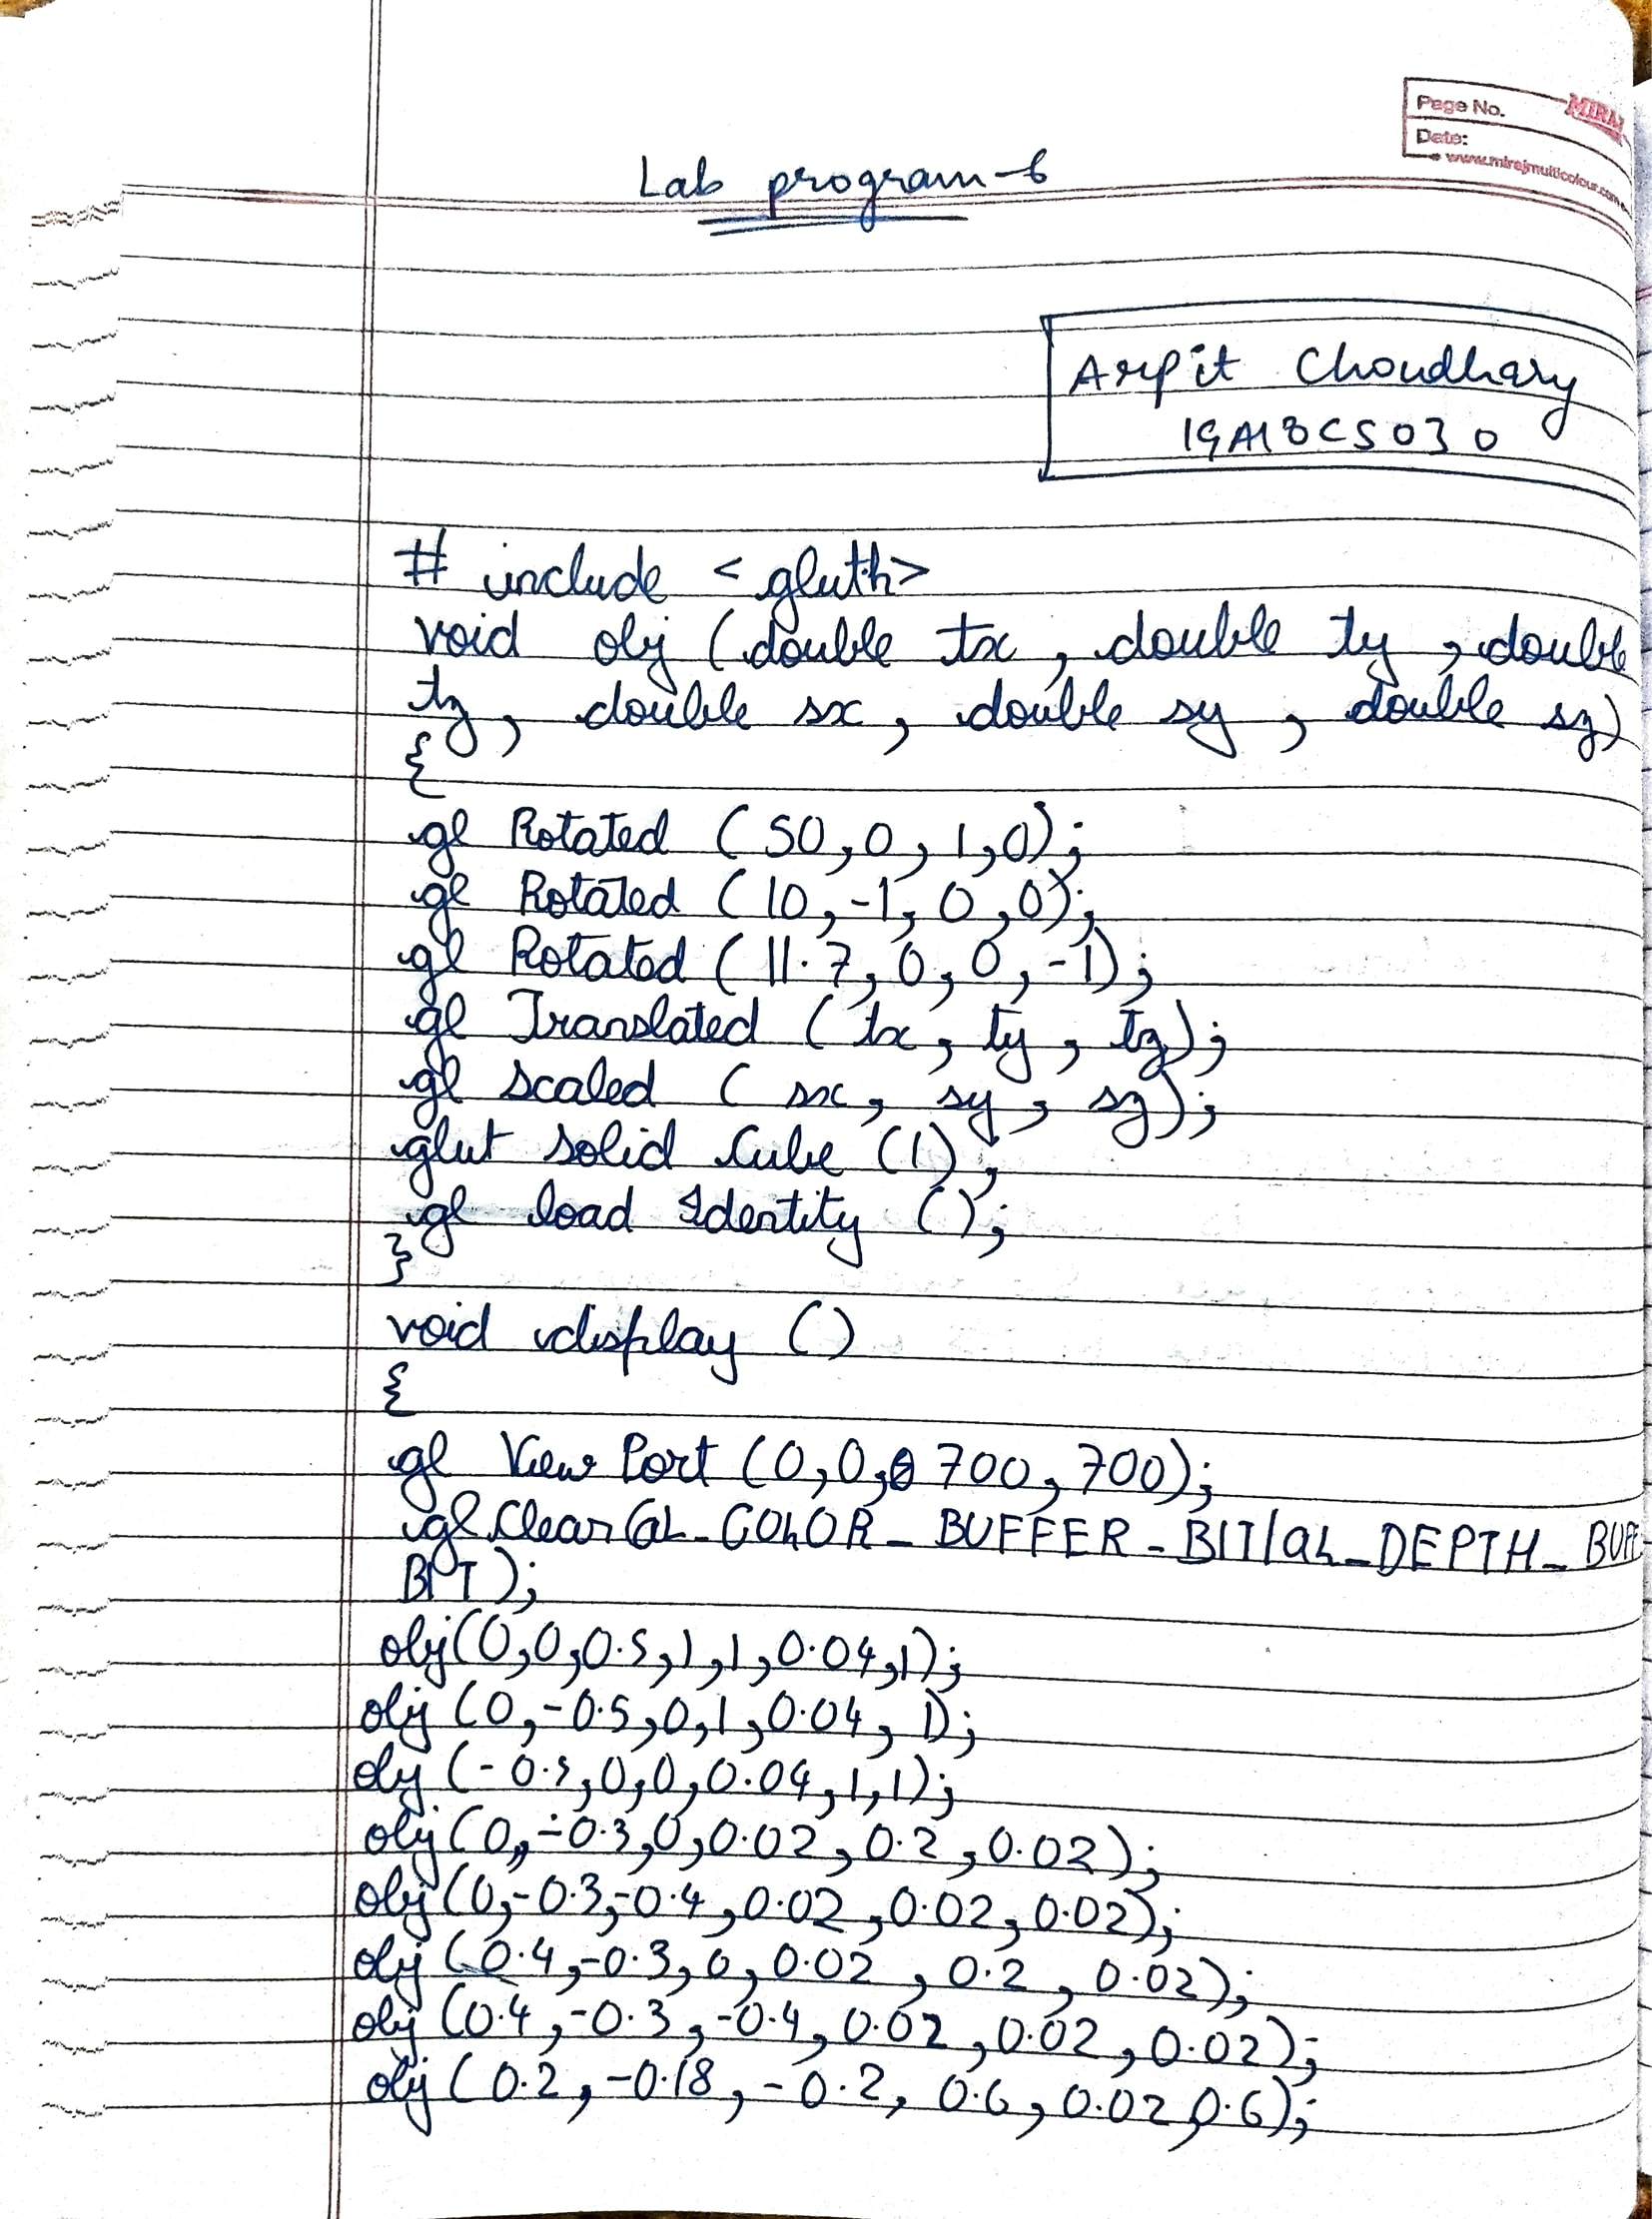 Page No.
MIRAJ
Date:
www.mirajmulticolour.com
Lab program-6
Arpit Choudhary
19A18CS030
# include <glut.h>
void obj (double tx, double ty, double
tz, double sx, double sy, double sz)
{
gl Rotated (50,0,1,0);
gl Rotated (10,-1,0,0);
gl Rotated (11.7,0,0,-1);
gl Translated (tx, ty, tz);
gl scaled (sx, sy, sz);
glut solid Cube (1);
gl load Identity ();
}
void display ()
{
gl View Port (0,0, 700,700);
gl Clear(GL_COLOR_BUFFER_BIT/GL_DEPTH_BUFF
BIT);
obj(0,0,0.5,1,1,0.04,1);
obj (0,-0.5,0,1,0.04, 1);
obj (-0.5,0,0,0.04,1,1);
obj(0,-0.3,0,0.02,0.2,0.02);
obj(0,-0.3,-0.4,0.02,0.02,0.02);
obj (0.4,-0.3,0,0.02,0.2,0.02);
obj (0.4,-0.3,-0.4,0.02,0.02,0.02);
obj (0.2,-0.18,-0.2,0.6,0.02,0.6);